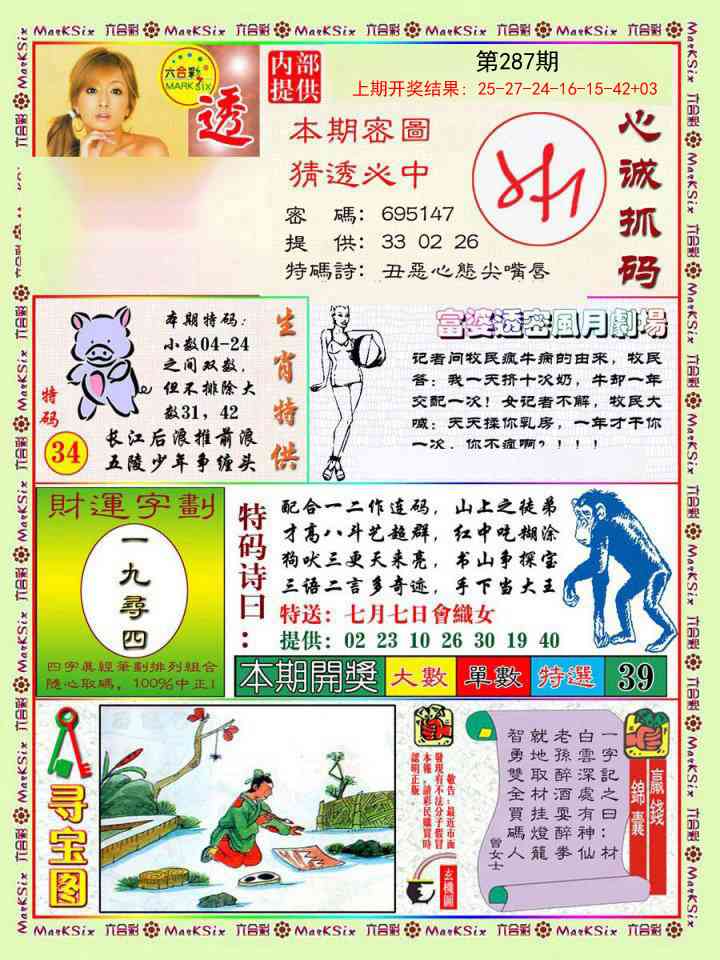 六合彩
MARK SIX
透
内部
提供
第287期
上期开奖结果：25-27-24-16-15-42+03
本期密圖
猜透必中
密　碼：695147
提　供：33 02 26
特碼詩：丑惡心態尖嘴唇
心诚抓码
本期特码：
小数04-24
之间双数，
但不排除大
数31，42
长江后浪推前浪
五陵少年争缠头
特码
34
生肖特供
富婆透密風月劇場
记者问牧民疯牛病的由来，牧民
答：我一天挤十次奶，牛却一年
交配一次！女记者不解，牧民大
喊：天天揉你乳房，一年才干你
一次，你不疯啊？！！！
財運字劃
一九尋四
四字真經筆劃排列組合
隨心取碼，100%中正！
特码诗曰：
配合一二作连码，山上之徒弟
才高八斗艺超群，红中吃糊涂
狗吠三更天未亮，书山争探宝
三语二言多奇迹，手下当大王
特送：七月七日會織女
提供：02 23 10 26 30 19 40
本期開獎 大數 單數 特選 39
寻宝图
敬告：最近市面
發現有不法分子假冒
本報，請彩民購買時
認明正版
玄機圖
一字記之曰：材
白雲深處有神仙
老孫醉酒耍醉拳
就地取材挂燈籠
智勇雙全買碼人
曾女士
贏錢
錦囊
六合彩 MarKSix 六合彩 MarKSix 六合彩 MarKSix 六合彩 MarKSix 六合彩 MarKSix